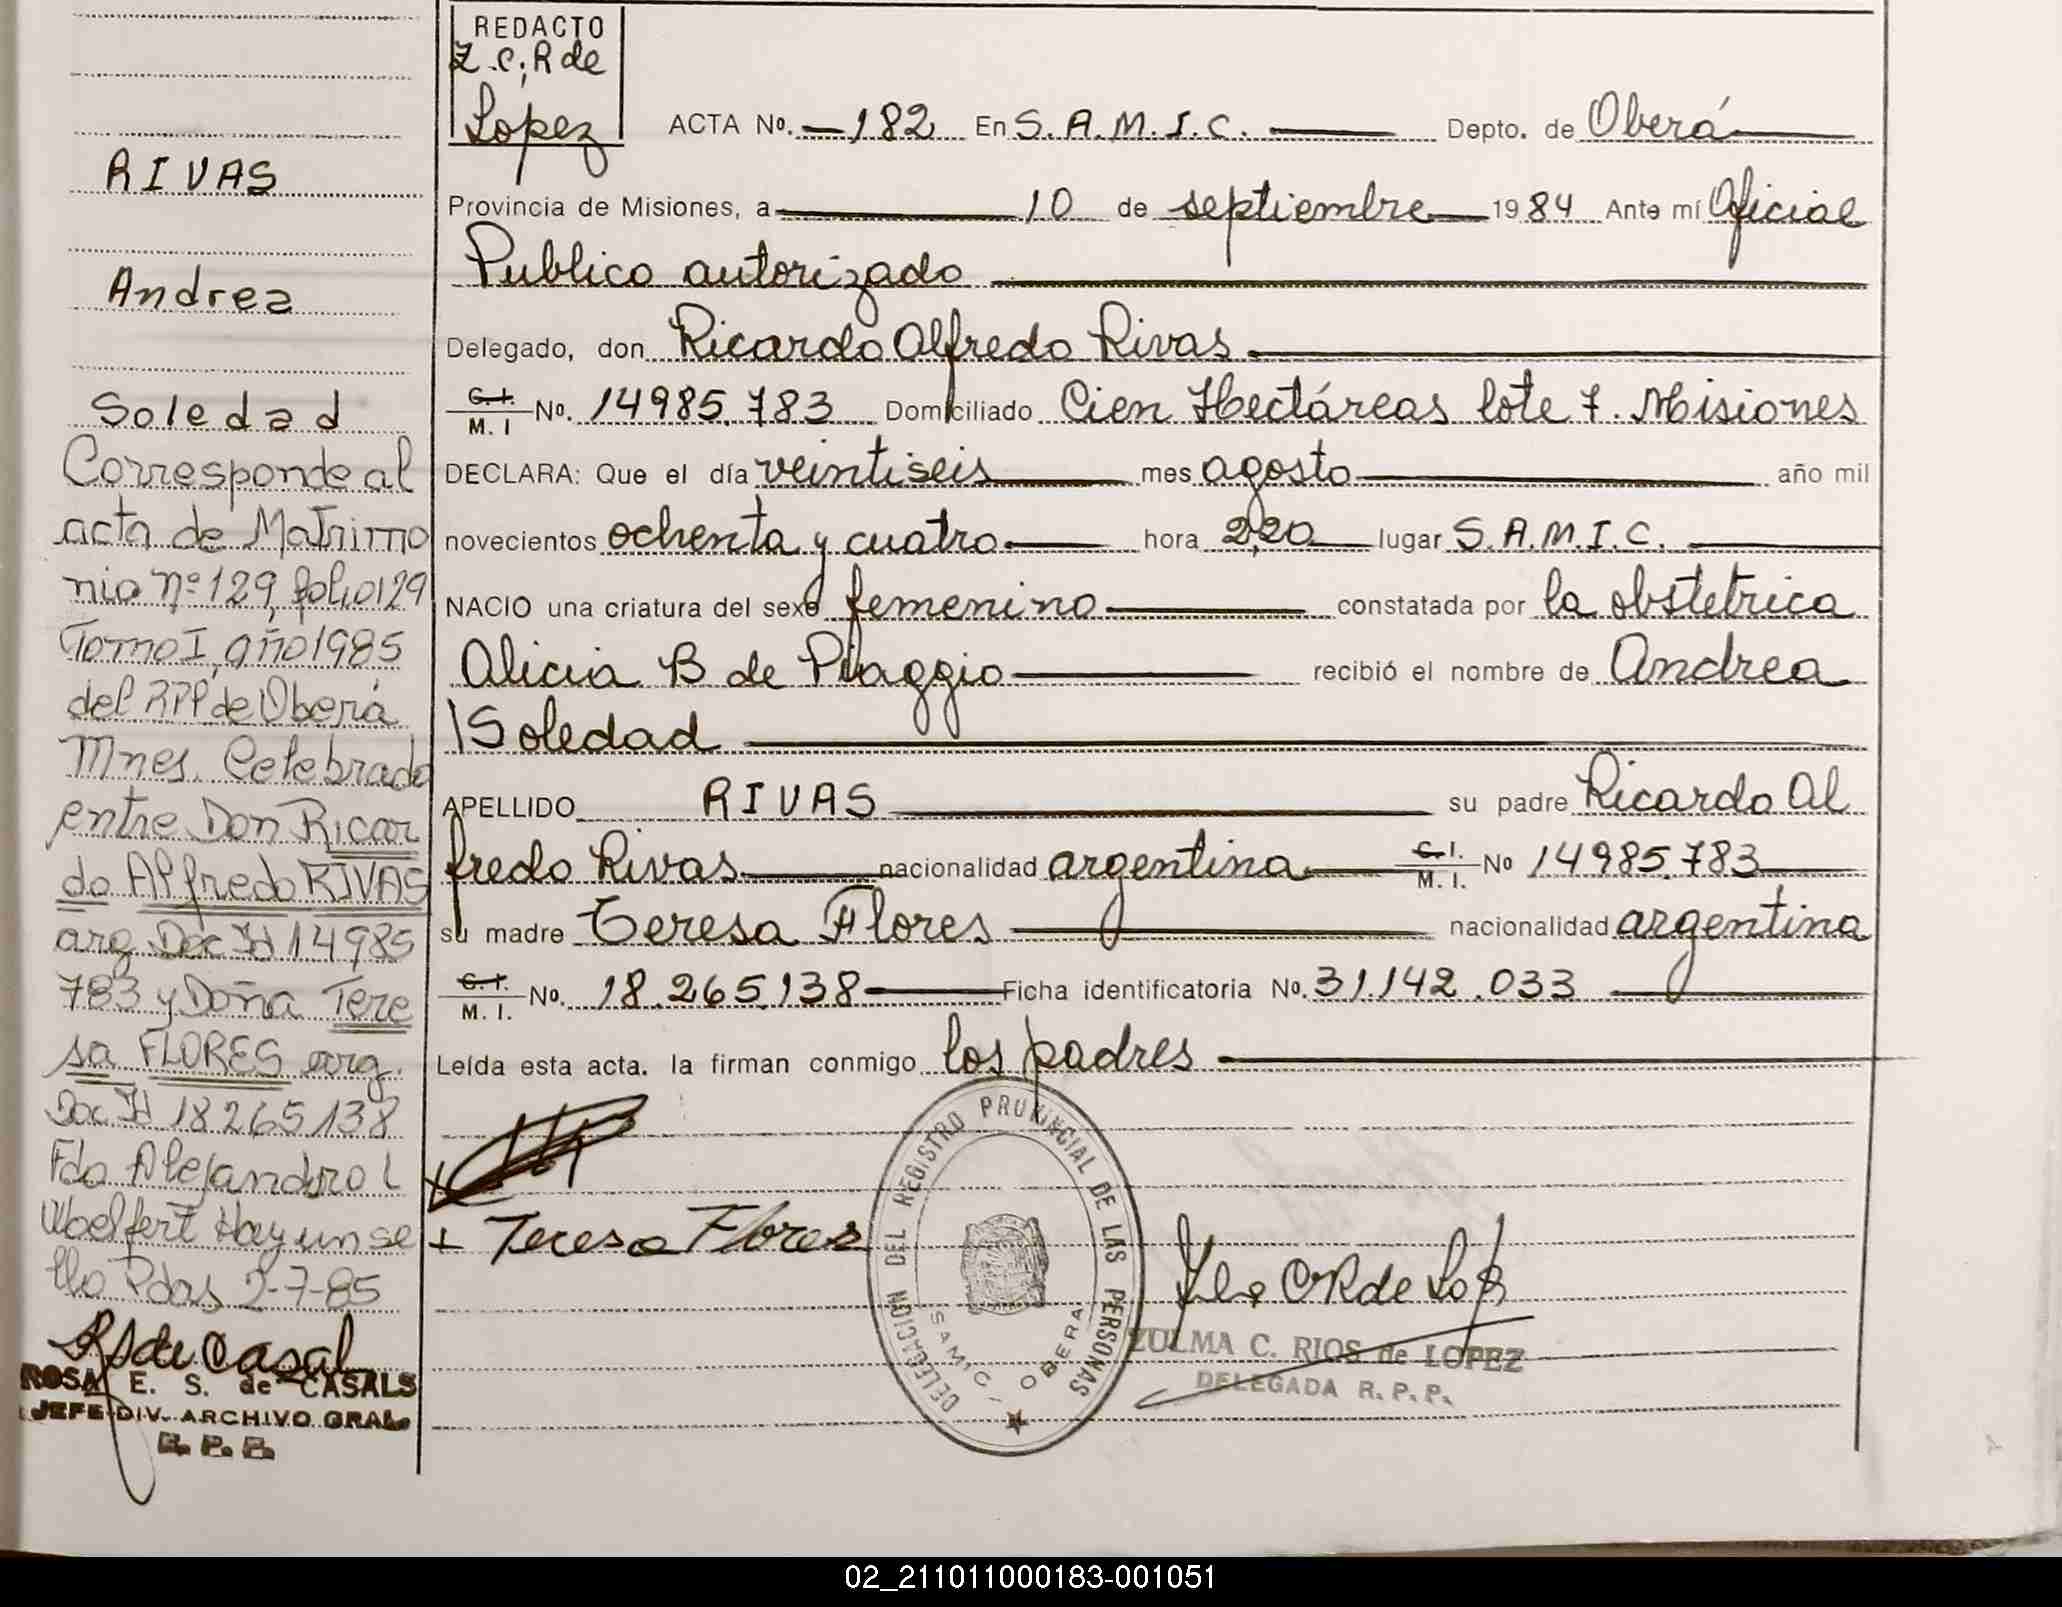 RIVAS
Andrea
Soledad
Corresponde al
acta de Matrimo
nio Nº 129, folio 129
Tomo I, año 1985
del RPP de Oberá
Mnes. Celebrado
entre Don Ricar
do Alfredo RIVAS
arg Doc Id 14985
783 y Doña Tere
sa FLORES arg.
Doc Id 18265138
Fdo Alejandro L
Woelfert Hay un se
llo Pdas 2-7-85
ROSA E. S. de CASALS
JEFE DIV. ARCHIVO GRAL.
R. P. P.
REDACTO
Z.C.R de
Lopez
ACTA Nº. 182 En S.A.M.I.C. Depto. de Oberá
Provincia de Misiones, a 10 de septiembre 1984 Ante mí Oficial
Publico autorizado
Delegado, don Ricardo Alfredo Rivas
C.I. / M. I No. 14985.783 Domiciliado Cien Hectáreas lote 7. Misiones
DECLARA: Que el día veintiseis mes agosto año mil
novecientos ochenta y cuatro hora 2,20 lugar S.A.M.I.C.
NACIO una criatura del sexo femenino constatada por la obstetrica
Alicia B de Piaggio recibió el nombre de Andrea
Soledad
APELLIDO RIVAS su padre Ricardo Al
fredo Rivas nacionalidad argentina C.I. / M. I. No 14985.783
su madre Teresa Flores nacionalidad argentina
C.I. / M. I. No. 18.265.138 Ficha identificatoria No. 31.142.033
Leída esta acta. la firman conmigo los padres
Teresa Flores
DELEGACION DEL REGISTRO PROVINCIAL DE LAS PERSONAS
SAMIC - OBERA
ZULMA C. RIOS de LOPEZ
DELEGADA R. P. P.
02_211011000183-001051